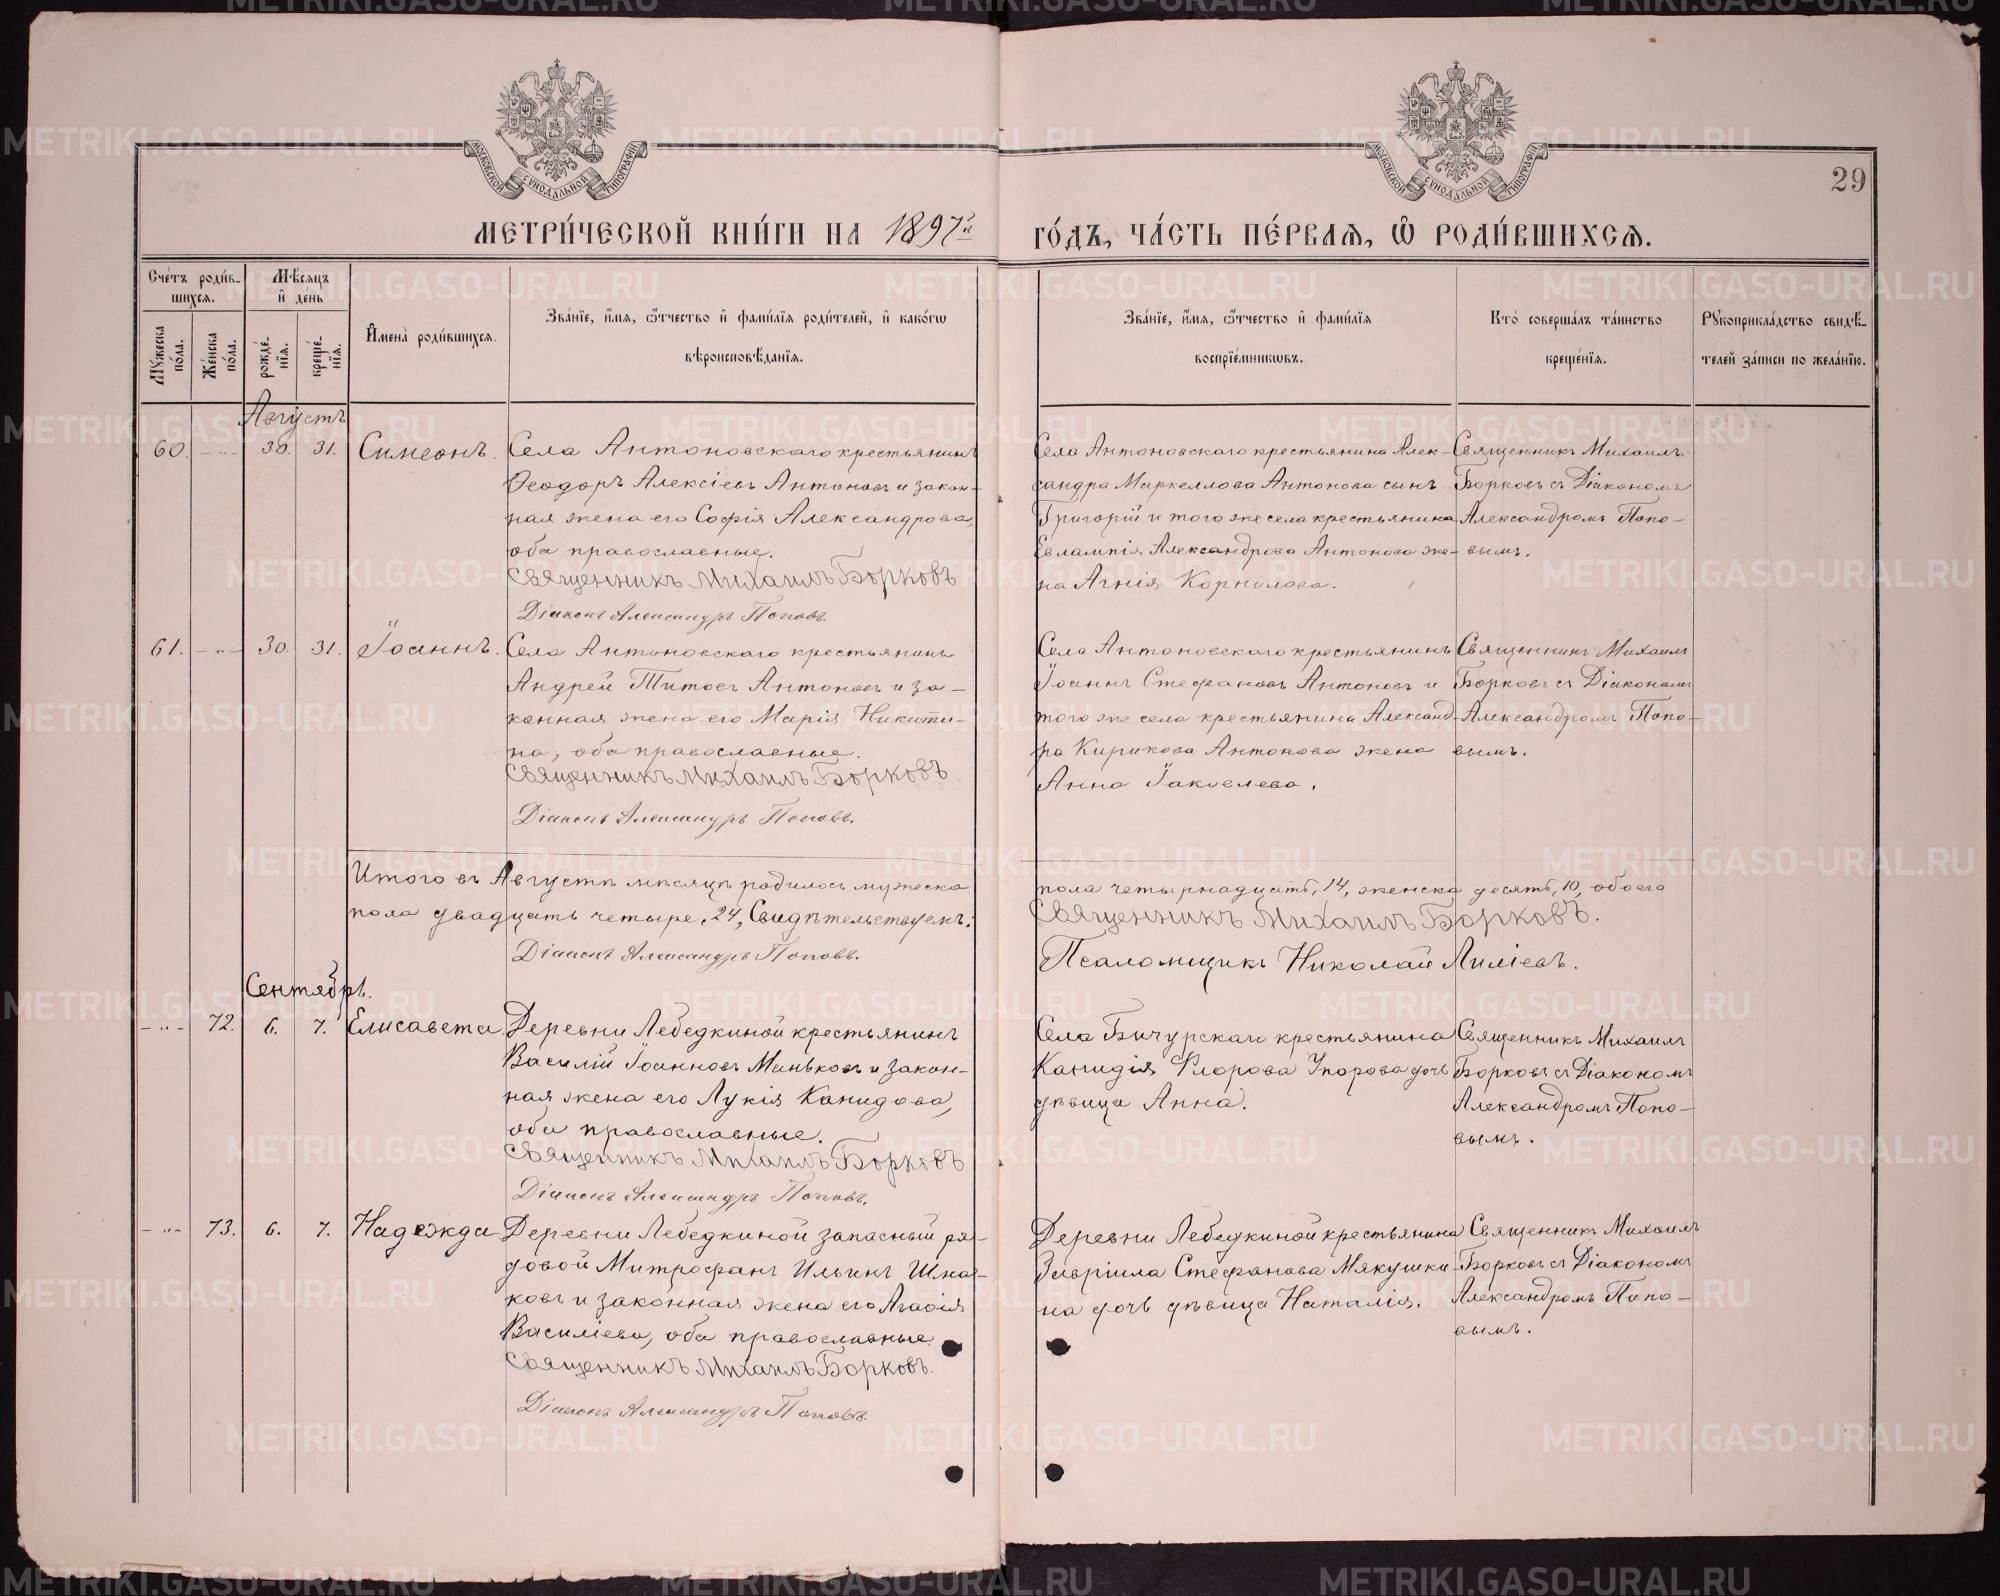 МЕТРИ́ЧЕСКОЙ КНИ́ГИ НА 1897й ГО́ДЪ, ЧА́СТЬ ПЕ́РВАЯ, Ѡ РОДИ́ВШИХСЯ.
29
Сче́тъ роди́в-
шихся.
Мѣ́сяцъ
и де́нь
Му́жеска
по́ла.
Же́нска
по́ла.
рожде́-
нїя.
креще́-
нїя.
Имена̀ роди́вшихся.
Зва́нїе, и́мя, ѻ́тчество и фами́лїя роди́телей, и како́гѡ
вѣроисповѣ́данїя.
Зва́нїе, и́мя, ѻ́тчество и фами́лїя
воспрїе́мниковъ.
Кто̀ соверша́лъ та́инство
креще́нїя.
Рукоприкла́дство свидѣ́-
телей за́писи по жела́нїю.
Августъ
60. - " - 30. 31. Симеонъ.
Села Антоновскаго крестьянинъ
Ѳеодоръ Алексіевъ Антоновъ и закон-
ная жена его Софія Александрова,
оба православные.
Священникъ Михаилъ Борковъ
Діаконъ Александръ Поповъ.
Села Антоновскаго крестьянина Алек-
сандра Маркеллова Антонова сынъ
Григорій и того же села крестьянина
Евлампія Александрова Антонова же-
на Агнія Корнилова.
Священникъ Михаилъ
Борковъ съ Діакономъ
Александромъ Попо-
вымъ.
61. - " - 30. 31. Іоаннъ.
Села Антоновскаго крестьянинъ
Андрей Титовъ Антоновъ и за-
конная жена его Марія Никити-
на, оба православные.
Священникъ Михаилъ Борковъ
Діаконъ Александръ Поповъ.
Села Антоновскаго крестьянинъ
Іоаннъ Стефановъ Антоновъ и
того же села крестьянина Александ-
ра Кирикова Антонова жена
Анна Іаковлева.
Священникъ Михаилъ
Борковъ съ Діакономъ
Александромъ Попо-
вымъ.
Итого въ Августѣ мѣсяцѣ родилось мужеска пола четырнадцать, 14, женска десять, 10, обоего
пола двадцать четыре, 24, Свидѣтельствуемъ: Священникъ Михаилъ Борковъ.
Діаконъ Александръ Поповъ. Псаломщикъ Николай Лиліевъ.
Сентябрь.
- " - 72. 6. 7. Елисавета
Деревни Лебедкиной крестьянинъ
Василій Іоанновъ Маньковъ и закон-
ная жена его Лукія Канидова,
оба православные.
Священникъ Михаилъ Борковъ
Діаконъ Александръ Поповъ.
Села Бичурскаго крестьянина
Канидія Флорова Упорова дочь
дѣвица Анна.
Священникъ Михаилъ
Борковъ съ Діакономъ
Александромъ Попо-
вымъ.
- " - 73. 6. 7. Надежда
Деревни Лебедкиной запасный ря-
довой Митрофанъ Ильинъ Шма-
ковъ и законная жена его Агафія
Василіева, оба православные
Священникъ Михаилъ Борковъ.
Діаконъ Александръ Поповъ.
Деревни Лебедкиной крестьянина
Гавріила Стефанова Мякушки-
на дочь дѣвица Наталія.
Священникъ Михаилъ
Борковъ съ Діакономъ
Александромъ Попо-
вымъ.
METRIKI.GASO-URAL.RU